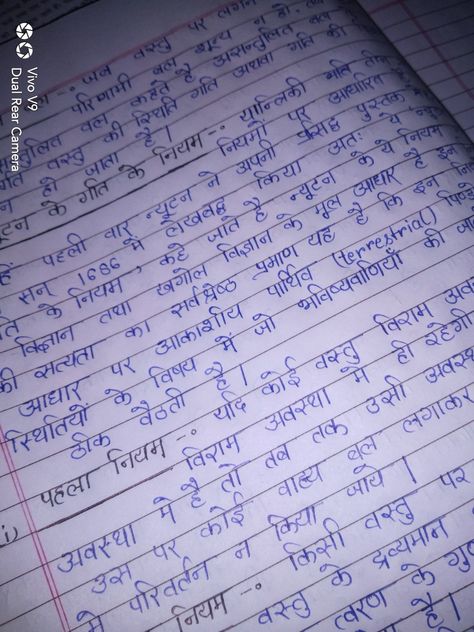 जब वस्तु पर लगने
परिणामी बल शून्य न हो, तब
बल कहते हैं असन्तुलित बल
वस्तु की स्थिति गति अथवा गति की
हो जाता है।
के गति के नियम -: यान्त्रिकी
पहली बार न्यूटन ने नियमों पर आधारित
सन् 1686 में लेखबद्ध किया अपनी प्रसिद्ध पुस्तक
के नियम, कहे जाते हैं अतः ये
विज्ञान तथा खगोल विज्ञान के मूल आधार हैं
की सत्यता का सर्वश्रेष्ठ प्रमाण यह है कि इन
आधार पर आकाशीय पार्थिव (terrestrial)
स्थितियों के विषय में जो भविष्यवाणियाँ की
ठीक बैठती है।
पहला नियम -: यदि कोई वस्तु विराम
विराम अवस्था में ही रहेगी
अवस्था में है तो तब तक उसी
उस पर कोई बाह्य बल लगाकर
में परिवर्तन न किया जाये।
नियम -: किसी वस्तु पर
वस्तु के द्रव्यमान
त्वरण के
है।
Vivo V9
Dual Rear Camera